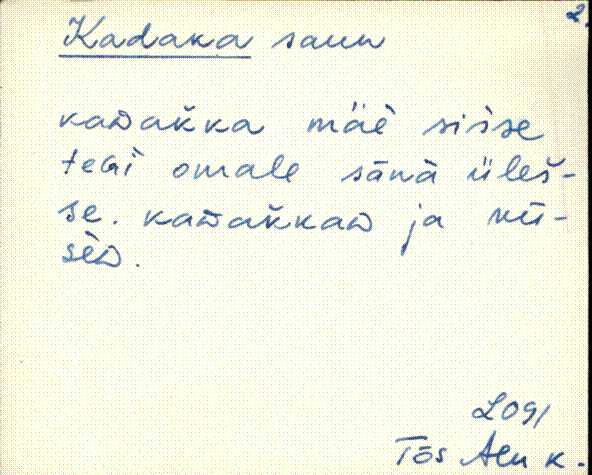 2.
Kadaka saun
kaᴅak̆ka mäè sisse
teGi omale sānà üles̆-
se. kaᴅak̆kaᴅ ja nī-
sèᴅ.
Tōs Alu k.